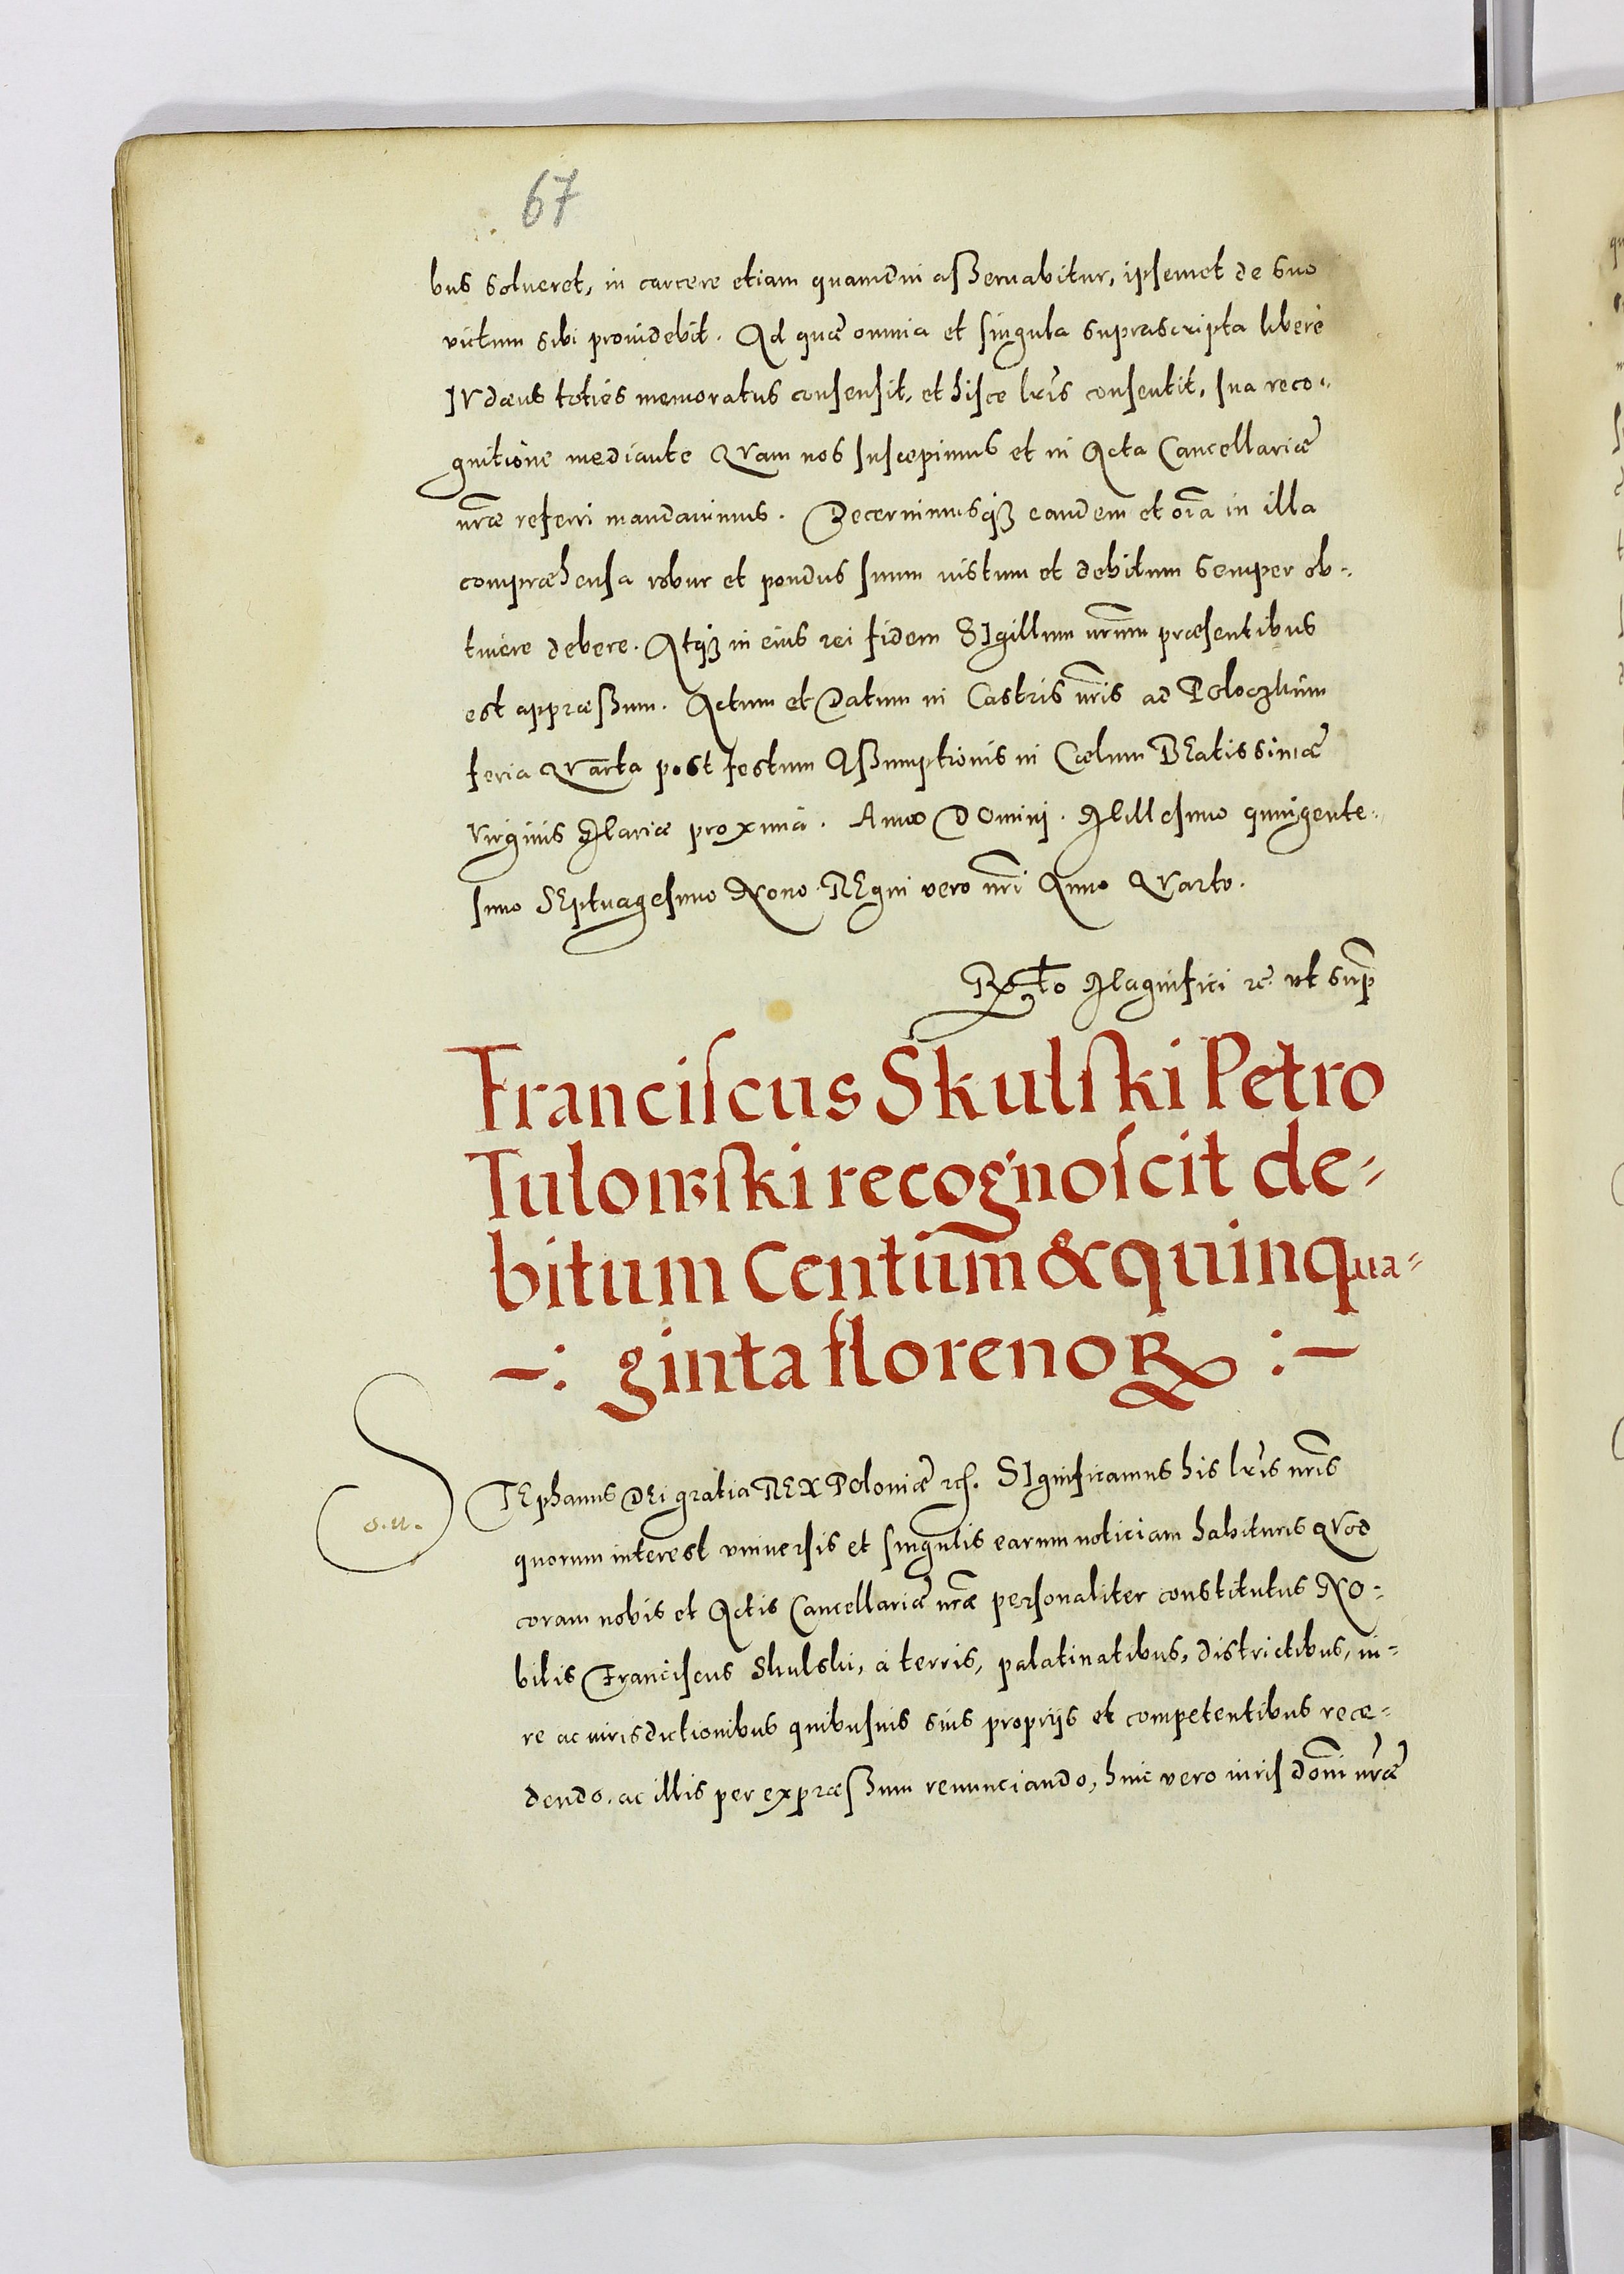 67
bus solueret, in carcere etiam quamdiu aßeruabitur, ipsemet de suo
victum sibi prouidebit. Ad quæ omnia et singula suprascripta liberè
IVdæus toties memoratus consensit, et hisce lr̃is consentit, sua reco-
gnitione mediante QVam nos suscepimus et in Acta Cancellariæ
nr̃æ referri mandauimus. Decernimusqꝫ eandem et oĩa in illa
compræhensa robur et pondus suum iustum et debitum semper ob-
tinere debere. Atqꝫ in eius rei fidem SIgillum nr̃um præsentibus
est appræßum. Actum et Datum in Castris nr̃is ad Poloczkum
feria QVarta post festum Aßumptionis in Cælum BEatissimæ
Virginis Mariæ proxima. Anno DOmini. Millesimo quingente-
simo SEptuagesimo Nono. REgni vero nr̃i Anno QVarto.
R̃cto Magnifici rc̃ vt sup̃
Franciscus Skulski Petro
Tulowski recognoscit de-
bitum Centum & quinqua-
-: ginta florenoꝝ :-
STEphanus DEi gratia REX Poloniæ rc̃. SIgnificamus his lr̃is nr̃is
o.u.
quorum interest vniuersis et singulis earum noticiam habituris QVod
coram nobis et Actis Cancellariæ nr̃æ personaliter constitutus NO-
bilis Franciscus Skulski, à terris, palatinatibus, districtibus, iu-
re ac iurisdictionibus quibusuis suis proprijs et competentibus recæ-
dendo, ac illis per expræßum renunciando, huic vero iuris dõni nr̃æ